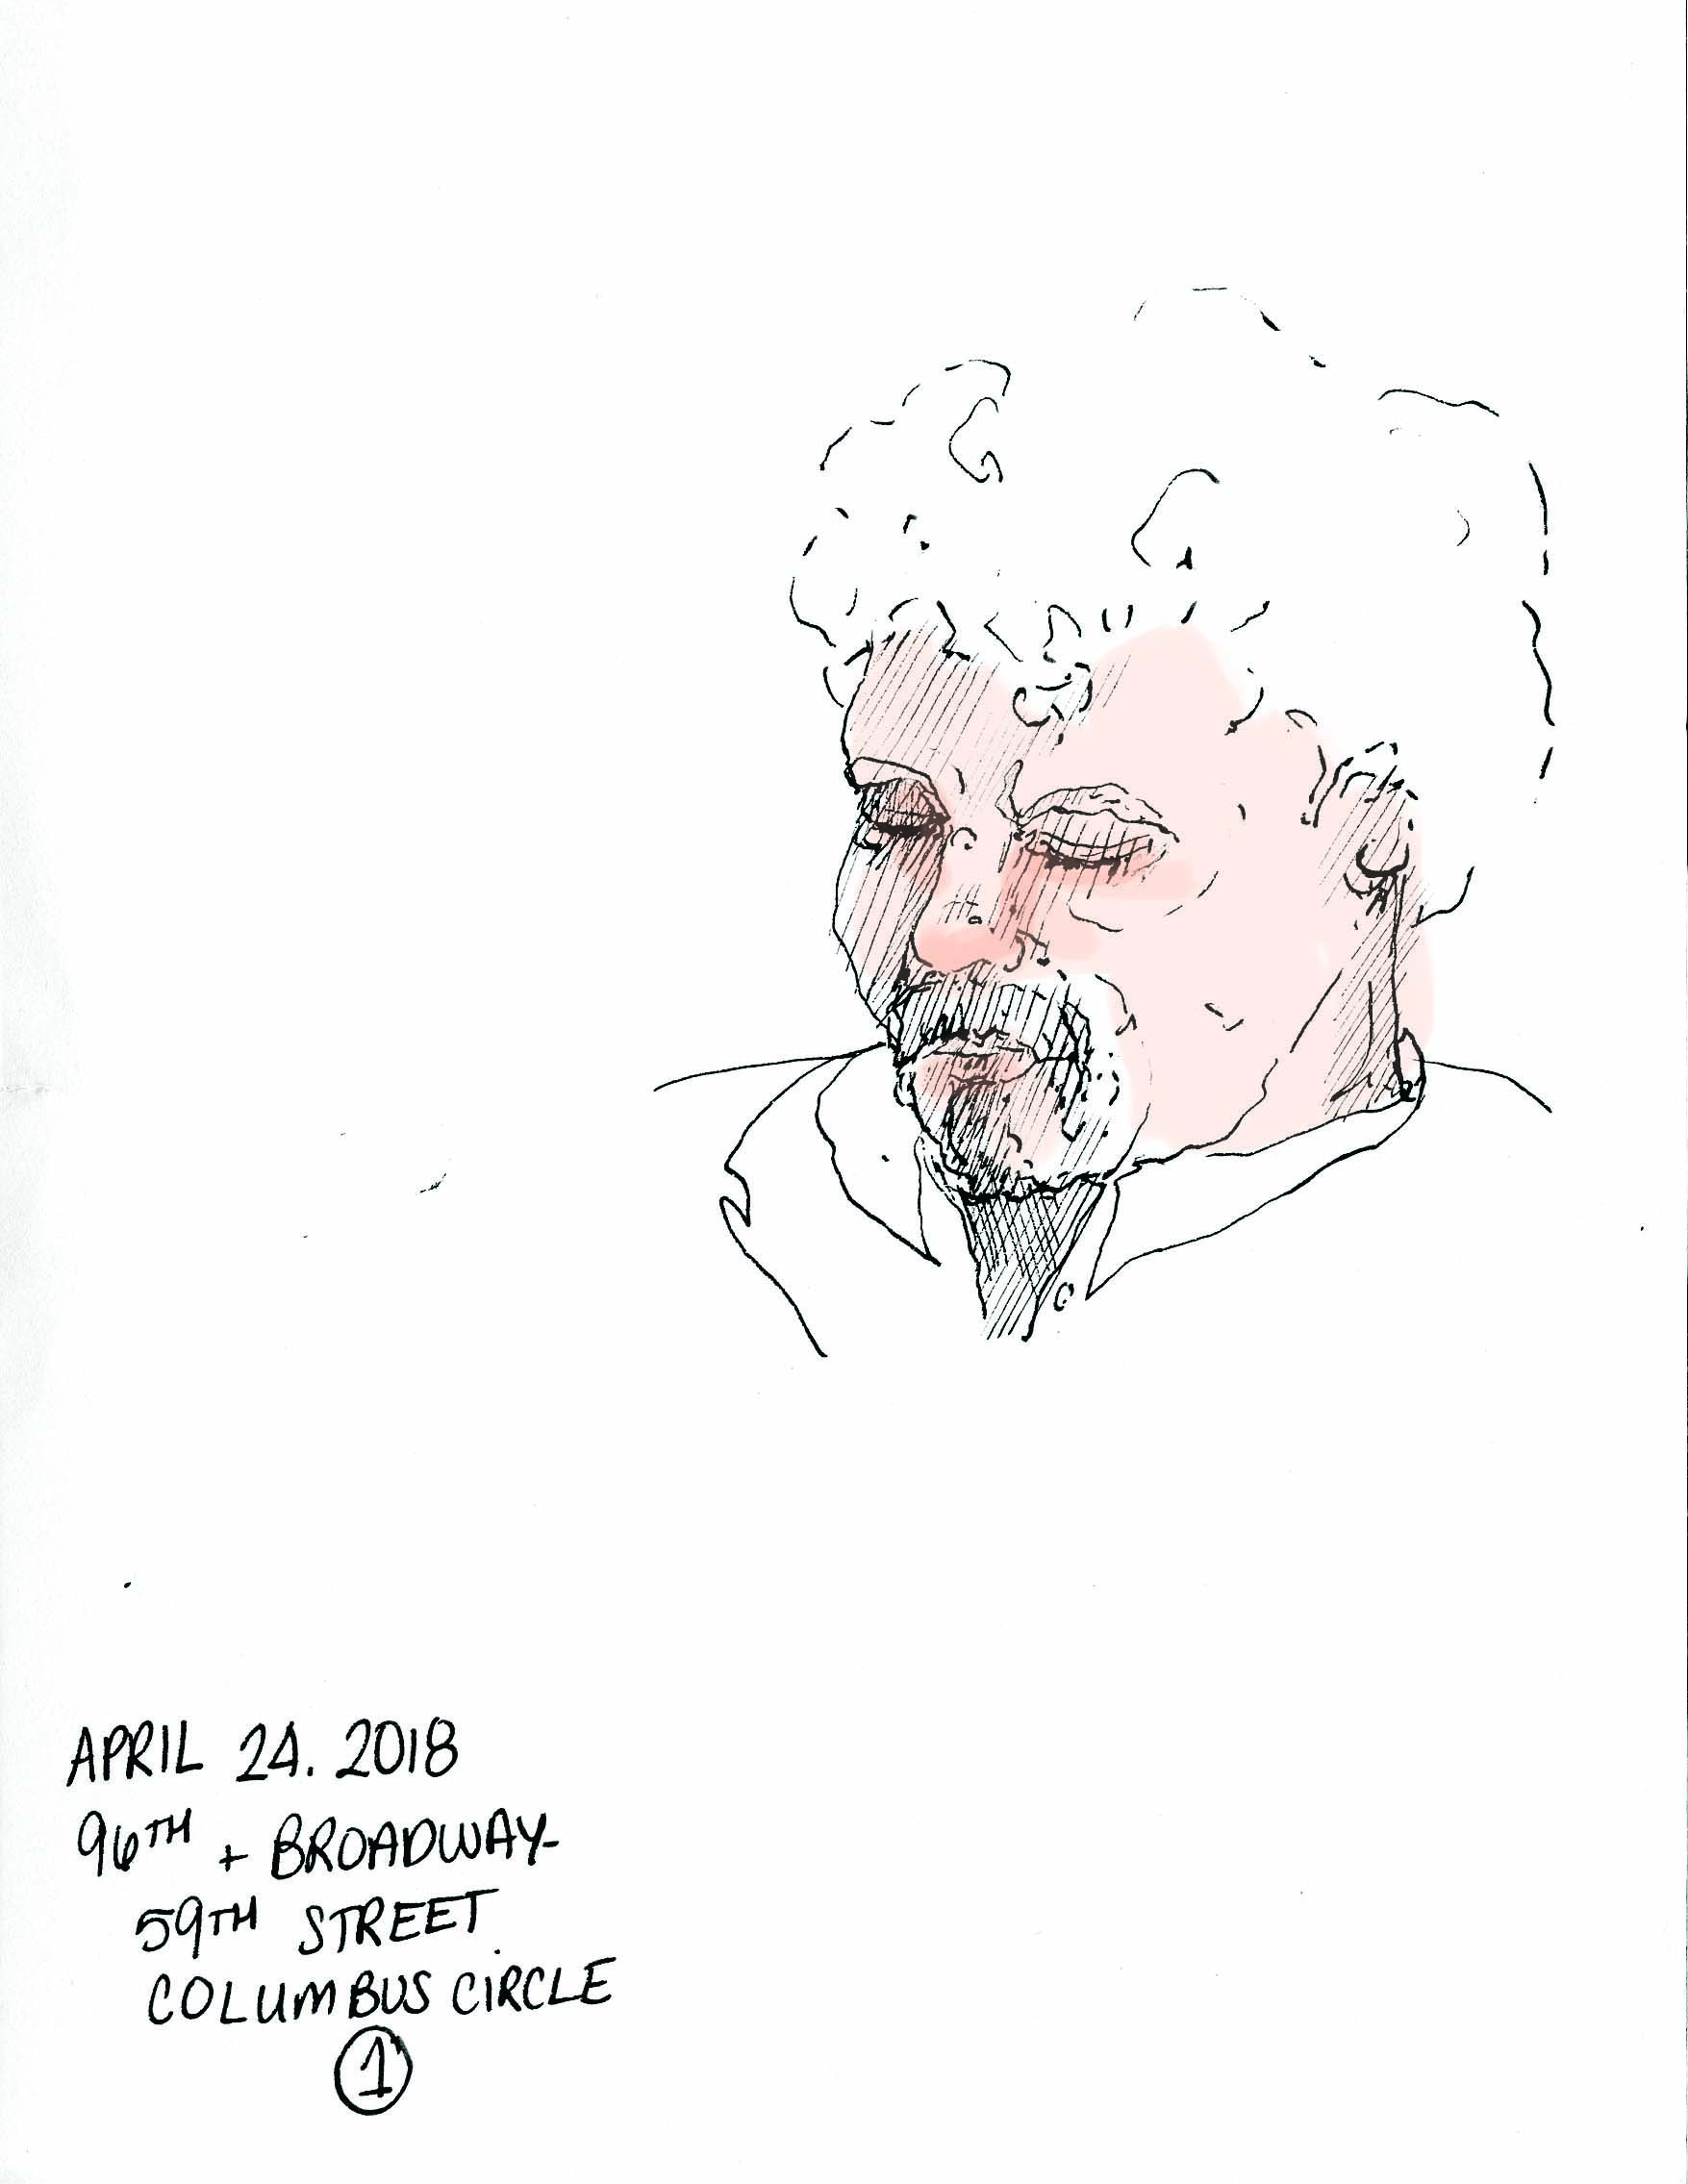 APRIL 24. 2018
96TH + BROADWAY-
59TH STREET
COLUMBUS CIRCLE
1